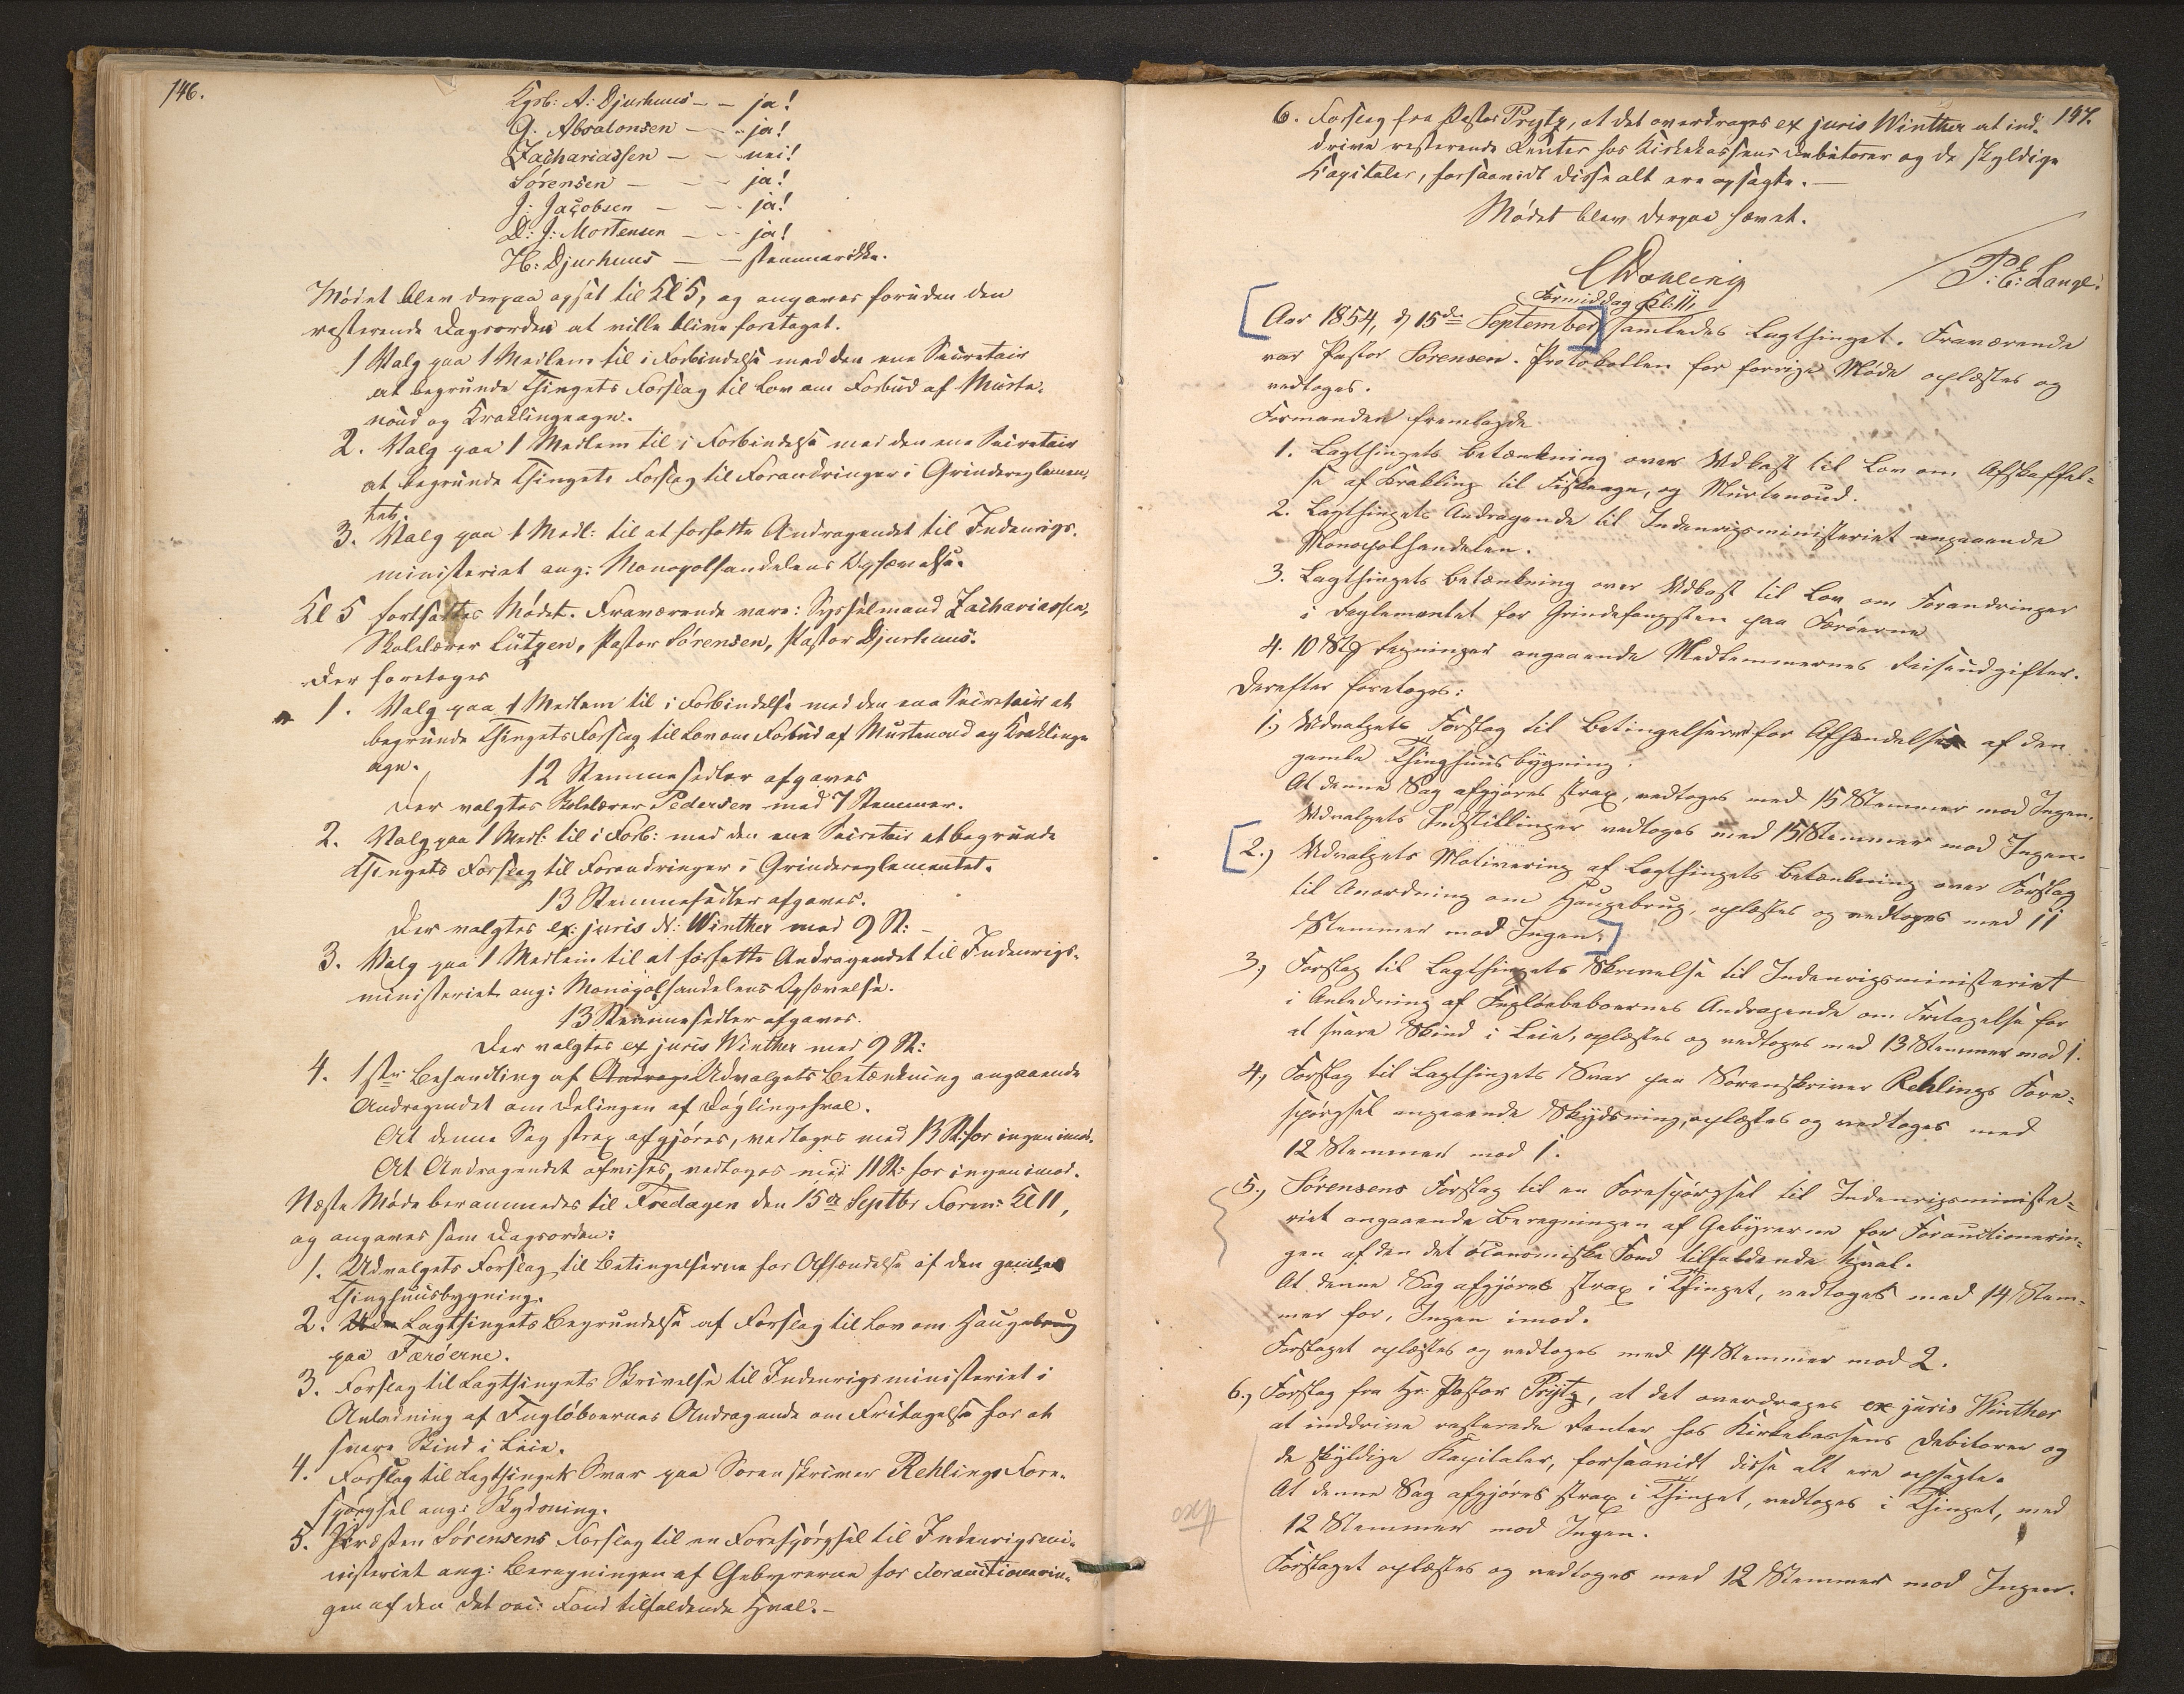 146.
Kgrb: A: Djurhuus – – ja!
G. Absalonsen – – ja!
Zachariassen – – nei!
Sørensen – – ja!
J: Jacobsen – – ja!
D: J: Mortensen – – ja!
H: Djurhuus – – stemmer ikke.
Mødet blev derpaa opsat til Kl 5, og angaves foruden den
resterende Dagsorden at ville blive foretaget.
1 Valg paa 1 Medlem til i Forbindelse med den ene Secretair
at begrunde Thingets Forslag til Lov om Forbud af Murte-
noud og Kraklingeagn.
2. Valg paa 1 Medlem til i Forbindelse med den ene Secretair
at begrunde Thingets Forslag til Forandringer i Grindereglemen-
tet.
3. Valg paa 1 Medl: til at forfatte Andragendet til Indenrigs-
ministeriet ang: Monopolhandelens Ophævelse.
Kl 5 fortsattes Mødet. Fraværende vare: Sysselmand Zachariassen,
Skolelærer Lützen, Pastor Sørensen, Pastor Djurhuus.
Der foretoges
1. Valg paa 1 Medlem til i Forbindelse med den ene Secretair at
begrunde Thingets Forslag til Lov om Forbud af Murtenoud og Kraklinge
agn.
12 Stemmesedler afgaves
Der valgtes Skolelærer Pedersen med 7 Stemmer.
2. Valg paa 1 Medl: til i Forb: med den ene Secretair at begrunde
Thingets Forslag til Forandringer i Grindereglementet.
13 Stemmesedler afgaves.
Der valgtes ex juris N: Winther med 9 St: –
3. Valg paa 1 Medlem til at forfatte Andragendet til Indenrigs-
ministeriet ang: Monopolhandelens Ophævelse.
13 Stemmesedler afgaves.
Der valgtes ex juris Winther med 9 St:
4. 1ste Behandling af Andrag Udvalgets Betænkning angaaende
Andragendet om Delingen af Døglingehval.
At denne Sag strax afgjøres, vedtoges med 13 St: for ingen imod.
At Andragendet afvises, vedtoges med 11 St: for ingen imod.
Næste Møde berammedes til Fredagen den 15de Septbr Form: Kl 11,
og angaves som Dagsorden:
1. Udvalgets Forslag til Betingelserne for Afhændelse af den gamle
Thinghuusbygning.
2. Lagthingets Begrundelse af Forslag til Lov om Haugebrug
paa Færøerne.
3. Forslag til Lagthingets Skrivelse til Indenrigsministeriet i
Anledning af Fugløboernes Andragende om Fritagelse for at
svare Skind i Leie.
4. Forslag til Lagthingets Svar paa Sorenskriver Rehlings Fore-
spørgsel ang: Skydsning.
5. Præsten Sørensens Forslag til en Forespørgsel til Indenrigsmi-
nisteriet ang: Beregningen af Gebyrerne for Forauctionerin-
gen af den det oec: Fond tilfaldende Hval. –
147.
6. Forslag fra Pastor Prytz, at det overdrages ex juris Winther at ind-
drive resterende Renter hos Kirkekassens Debitorer og de skyldige
Kapitaler, forsaavidt disse alt ere opsagte. –
Mødet blev derpaa hævet.
CDahlerup
P: E: Lange.
Formiddag Kl: 11,
Aar 1854, d 15de September samledes Lagthinget. Fraværende
var Pastor Sørensen. Protokollen for forrige Møde oplæstes og
vedtoges.
Formanden fremlagde
1. Lagthingets Betænkning over Udkast til Lov om Afskaffel-
se af Krakling til Fiskeagn, og Murtenoud.
2. Lagthingets Andragende til Indenrigsministeriet angaaende
Monopolhandelen.
3. Lagthingets Betænkning over Udkast til Lov om Forandringer
i Reglementet for Grindefangsten paa Færöerne
4. 10 Stk Regninger angaaende Medlemmernes Reiseudgifter.
Derefter foretoges:
1.) Udvalgets Forslag til Betingelserne for Afhændelse af den
gamle Thinghuusbygning.
At denne Sag afgjøres strax, vedtoges med 15 Stemmer mod Ingen.
Udvalgets Indstillinger vedtoges med 15 Stemmer mod Ingen.
2.) Udvalgets Motivering af Lagthingets Betænkning over Forslag
til Anordning om Haugebrug, oplæstes og vedtoges med 11
Stemmer mod Ingen.
3.) Forslag til Lagthingets Skrivelse til Indenrigsministeriet
i Anledning af Fugløebeboernes Andragende om Fritagelse for
at svare Skind i Leie, oplæstes og vedtoges med 13 Stemmer mod 1.
4.) Forslag til Lagthingets Svar paa Sorenskriver Rehlings Fore-
spörgsel angaaende Skydsning, oplæstes og vedtoges med
12 Stemmer mod 1.
5.) Sörensens Forslag til en Forespörgsel til Indenrigsministe-
riet angaaende Beregningen af Gebyrerne for Forauctionerin-
gen af den det öconomiske Fond tilfaldende Hval.
At denne Sag afgjöres strax i Thinget, vedtoges med 14 Stem-
mer for, Ingen imod.
Forslaget oplæstes og vedtoges med 14 Stemmer mod 2.
6.) Forslag fra Hr. Pastor Prytz, at det overdrages ex juris Winther
at inddrive resterede Renter hos Kirkekassens Debitorer og
de skyldige Kapitaler, forsaavidt disse alt ere opsagte.
At denne Sag afgjøres strax i Thinget, vedtoges i Thinget, med
12 Stemmer mod Ingen.
Forslaget oplæstes og vedtoges med 12 Stemmer mod Ingen.